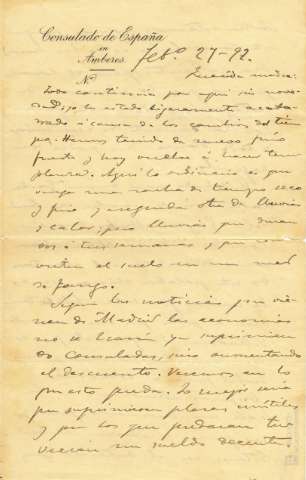 Consulado de España
en
Amberes.
Feb.º 27-92.
Nº
Querida madre:
Todo continúa por aquí sin nove-
dad; yo he estado ligeramente acata-
rrado á causa de los cambios del tiem-
po. Hemos tenido de nuevo frío
fuerte y hoy vuelve á hacer tem-
planza. Aquí lo ordinario es que
venga una racha de tiempo seco
y frío, y enseguida otra de lluvias
y calor; pero lluvias que duran
dos ó tres semanas y que con-
vierten el suelo en un mar
de fango.
Según las noticias que vie-
nen de Madrid las economías
no se harán ya suprimien-
do Consulados, sino aumentando
el descuento. Veremos en lo
que esto queda. Lo mejor sería
que suprimieran plazas inútiles
y que los que quedaran tu-
vieran un sueldo decente;